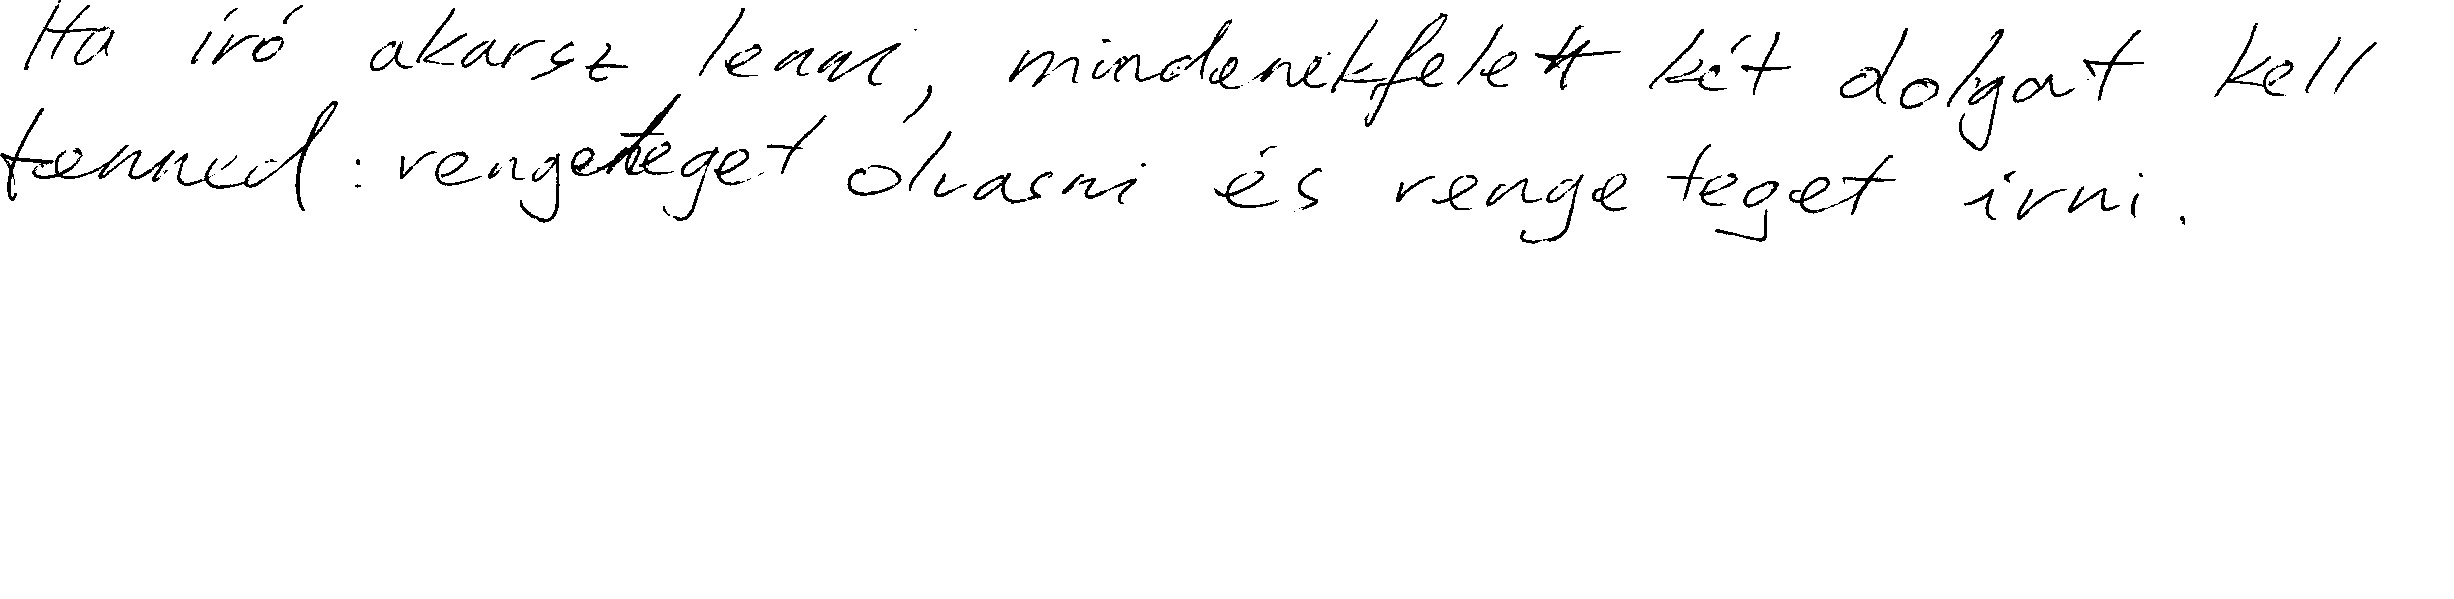 Ha író akarsz lenni, mindenekfelett két dolgat kell
tenned: rengeteget olvasni és rengeteget írni.